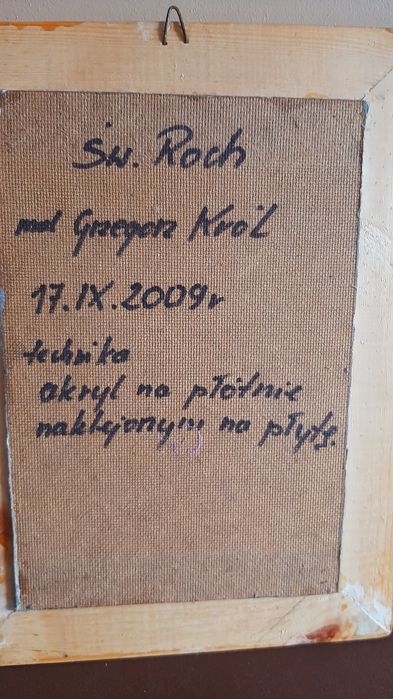 Św. Roch
mal Grzegorz Król
17.IX.2009r
technika
akryl na płótnie
naklejonym na płytę.